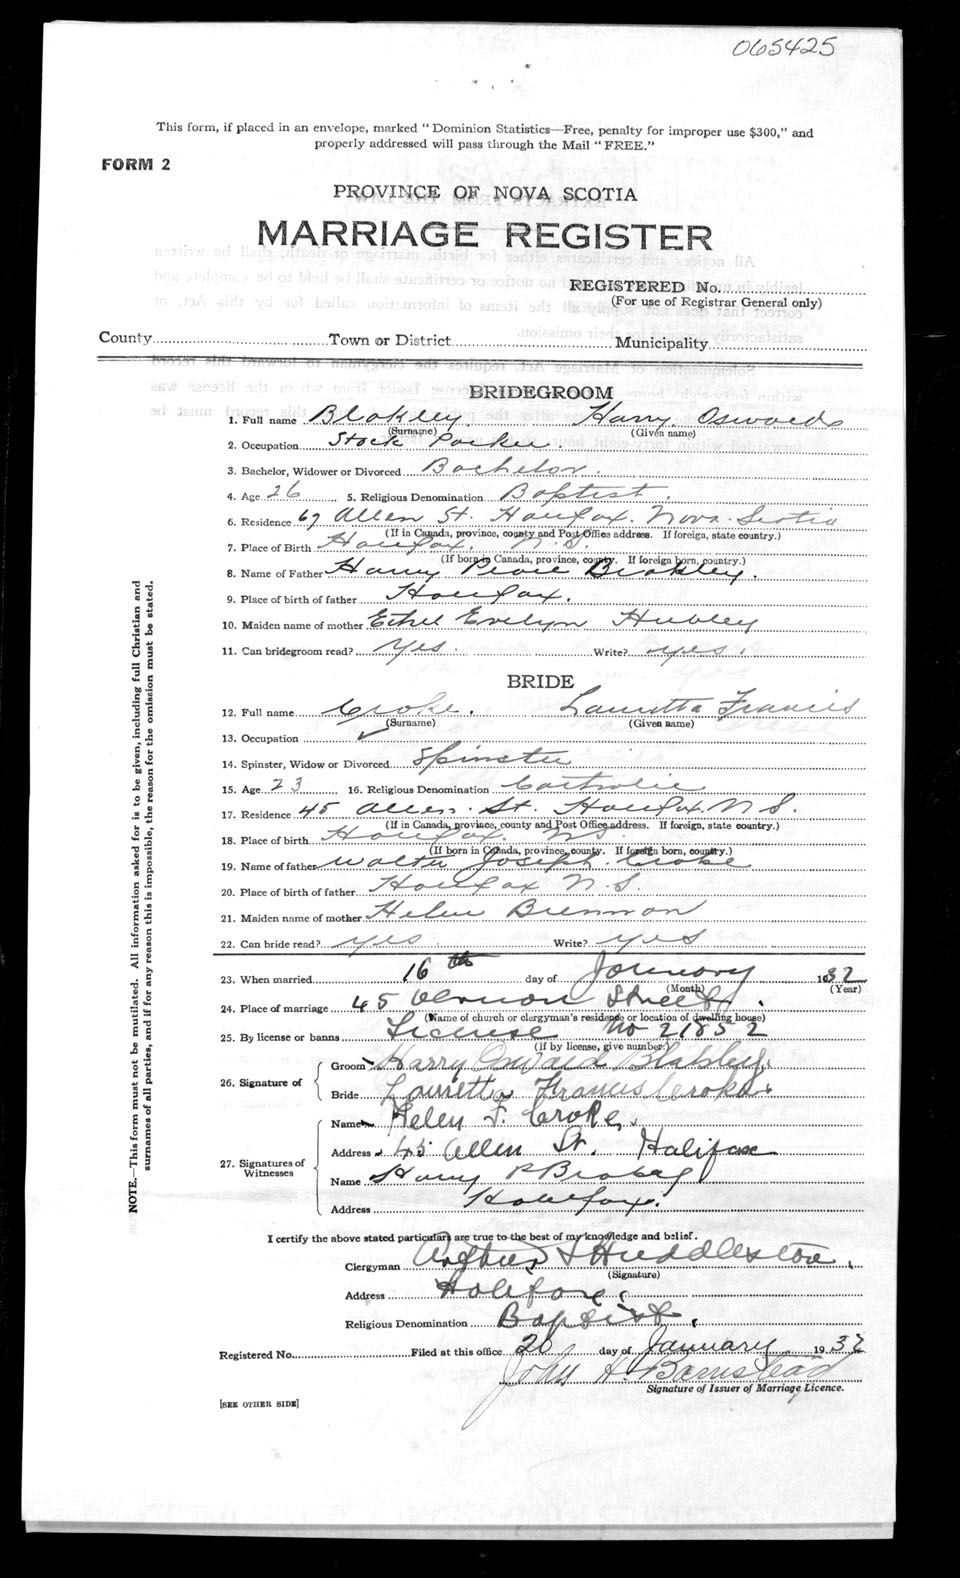 065425
This form, if placed in an envelope, marked "Dominion Statistics—Free, penalty for improper use $300," and
properly addressed will pass through the Mail "FREE."
FORM 2
PROVINCE OF NOVA SCOTIA
MARRIAGE REGISTER
REGISTERED No.
(For use of Registrar General only)
County Town or District Municipality
BRIDEGROOM
1. Full name Blakley. Harry Oswald
(Surname) (Given name)
2. Occupation Stock Packer.
3. Bachelor, Widower or Divorced Bachelor.
4. Age 26 5. Religious Denomination Baptist.
6. Residence 67 Allen St. Halifax. Nova Scotia
(If in Canada, province, county and Post Office address. If foreign, state country.)
7. Place of Birth Halifax. N.S.
(If born in Canada, province, county. If foreign born, country.)
8. Name of Father Harry Blakley.
9. Place of birth of father Halifax.
10. Maiden name of mother Ethel Evelyn Hubley
11. Can bridegroom read? Yes. Write? yes.
BRIDE
12. Full name Croke. Lauretta Francis
(Surname) (Given name)
13. Occupation ✓
14. Spinster, Widow or Divorced Spinster
15. Age 23 16. Religious Denomination Catholic
17. Residence 45 Allen St. Halifax N.S.
(If in Canada, province, county and Post Office address. If foreign, state country.)
18. Place of birth Halifax. N.S.
(If born in Canada, province, county. If foreign born, country.)
19. Name of father Walter Joseph Croke
20. Place of birth of father Halifax N.S.
21. Maiden name of mother Helen Brennan
22. Can bride read? yes Write? yes
23. When married 16th day of January 1932
(Month) (Year)
24. Place of marriage 45 Vernon Street.
(Name of church or clergyman's residence or location of dwelling house)
25. By license or banns License No 21852
(If by license, give number.)
26. Signature of
Groom Harry Oswald Blakley.
Bride Lauretta Francis Croke.
27. Signatures of Witnesses
Name Helen F. Croke.
Address 45 Allen St. Halifax
Name Harry P Blakley
Address Halifax.
I certify the above stated particulars are true to the best of my knowledge and belief.
Clergyman Arthur Huddleston.
(Signature)
Address Halifax.
Religious Denomination Baptist.
Registered No. Filed at this office 20 day of January 1932
John H. Barnstead
Signature of Issuer of Marriage Licence.
[SEE OTHER SIDE]
NOTE.—This form must not be mutilated. All information asked for is to be given, including full Christian and
surnames of all parties, and if for any reason this is impossible, the reason for the omission must be stated.